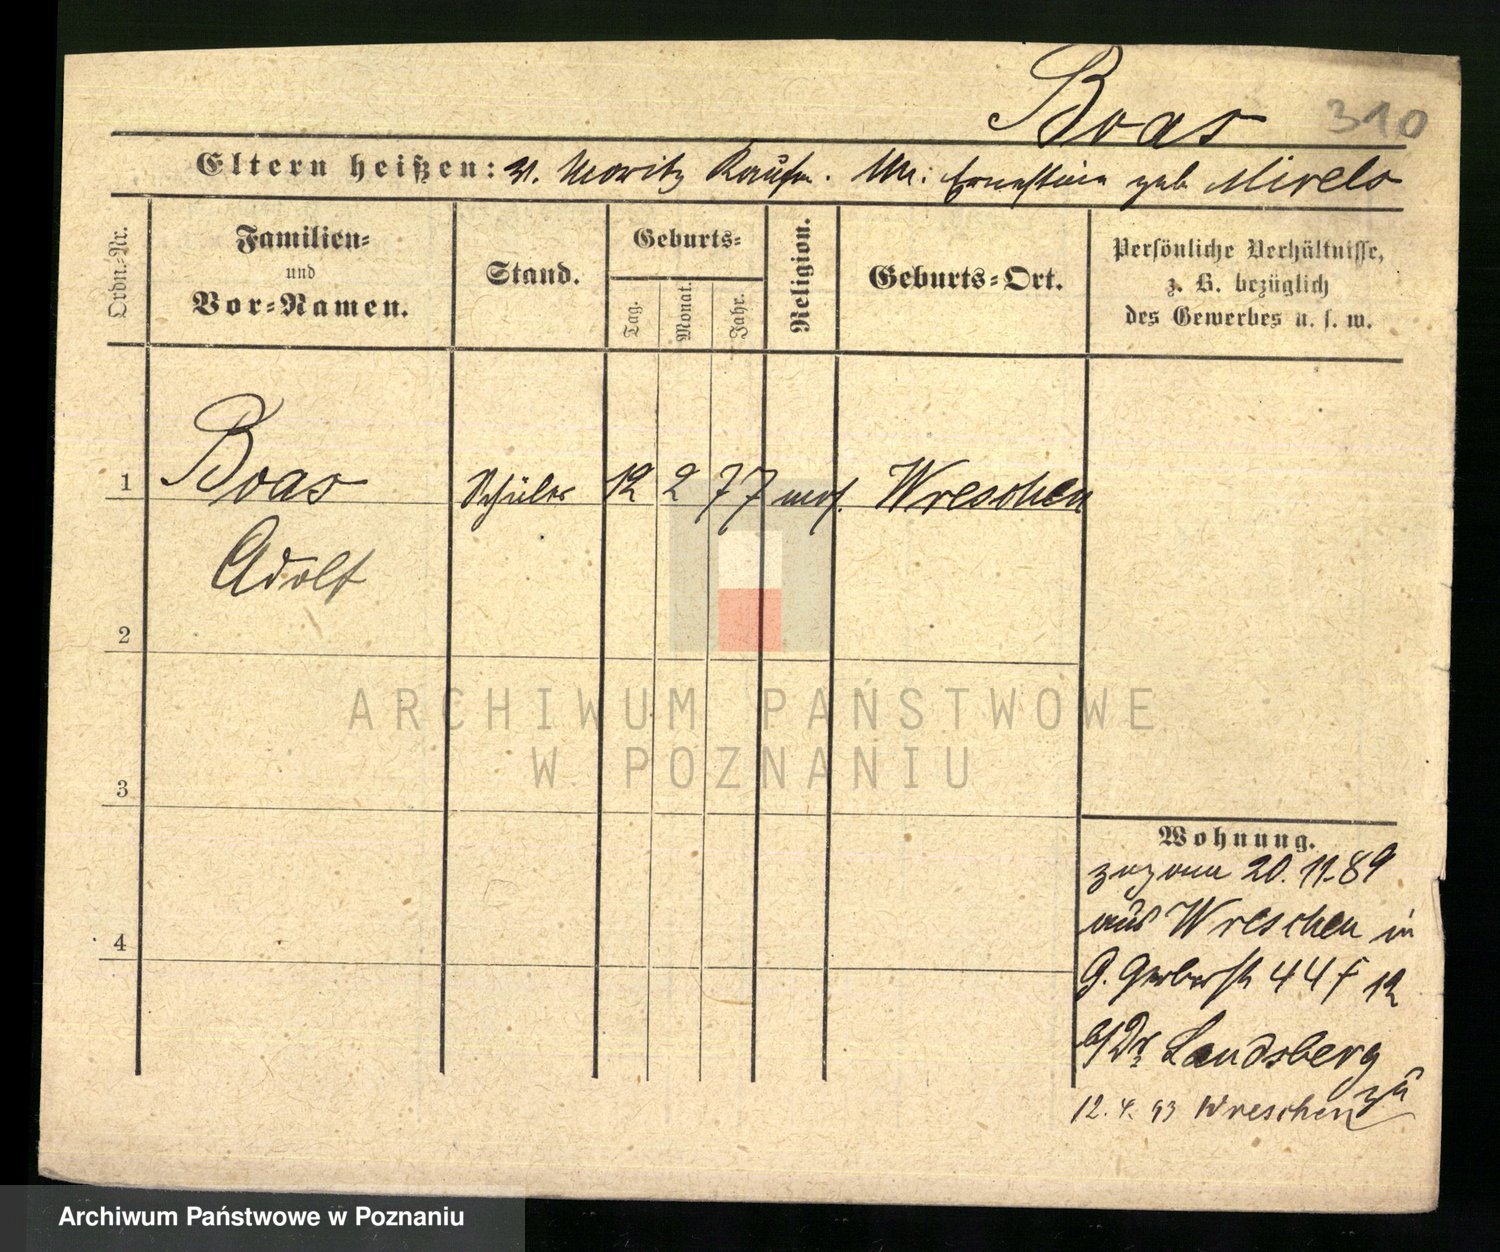 Boas 310
Eltern heißen: V. Moritz Kaufm. M: Ernestine geb Mirels
Ordn.-Nr.
Familien-
und
Vor-Namen.
Stand.
Geburts-
Tag.
Monat.
Jahr.
Religion.
Geburts-Ort.
Persönliche Verhältnisse,
z. B. bezüglich
des Gewerbes u. s. w.
1 Boas Schüler 12 2 77 mos. Wreschen
Adolf
2
ARCHIWUM PAŃSTWOWE
W POZNANIU
3
Wohnung.
zugzom 20. 11. 89
aus Wreschen in
G. Gerberstr 44 f 12
b/Dr Landsberg
zu
12. 4. 93 Wreschen
4
Archiwum Państwowe w Poznaniu